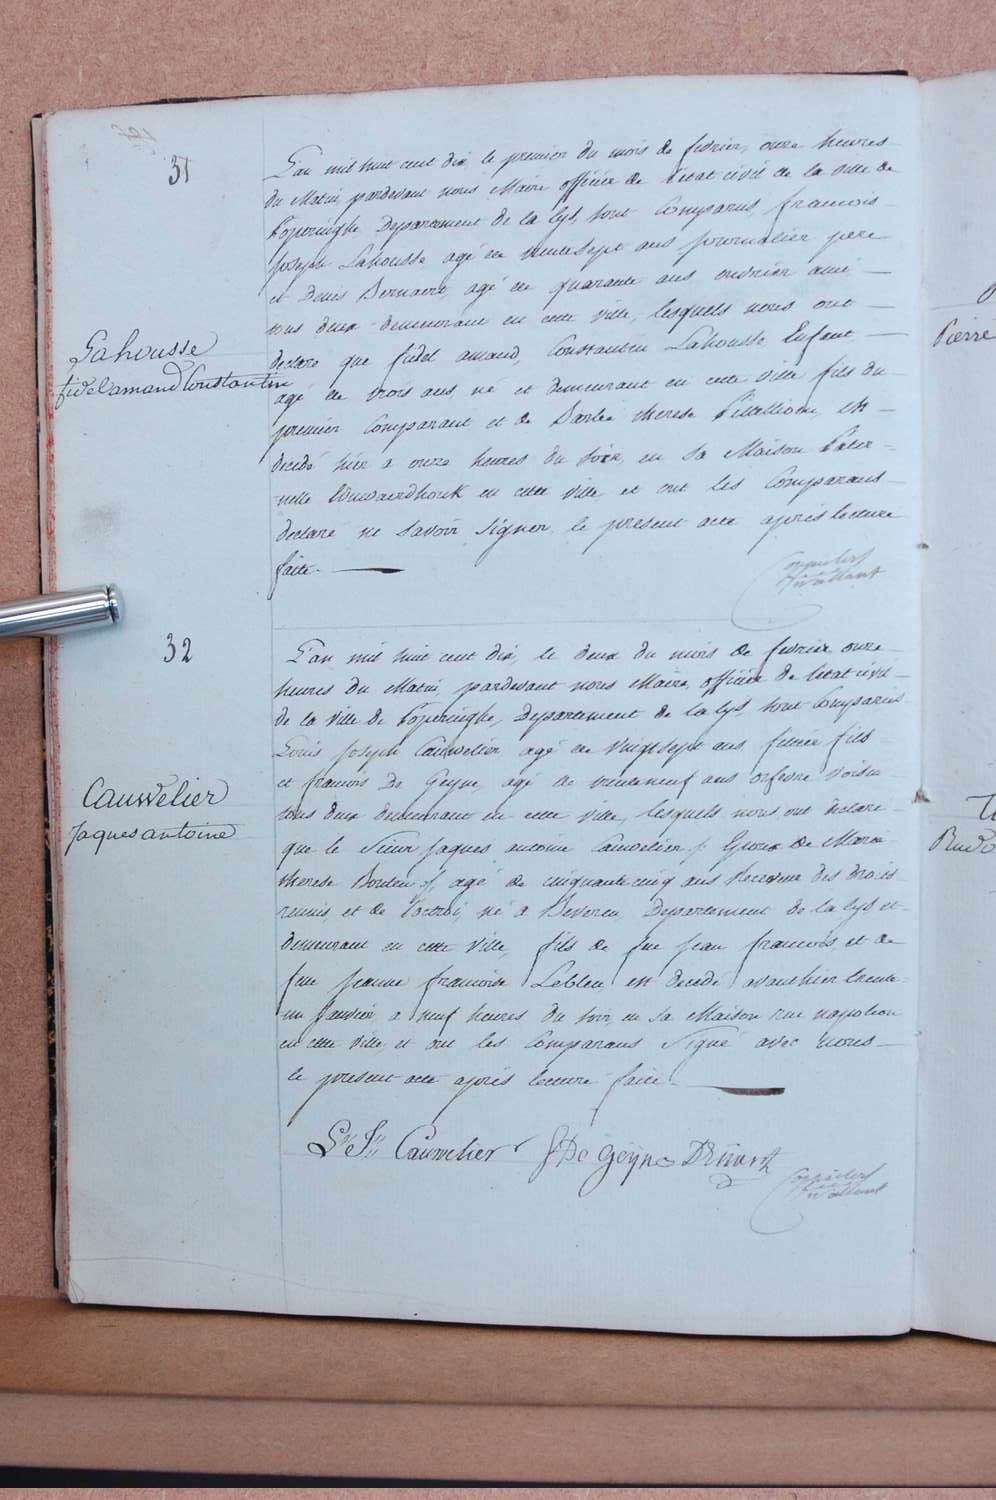 31
L'an mil huit cent dix, le premier du mois de fevrier, onze heures
du Matin, pardevant nous Maire officier de l'etat civil de la ville de
Poperinghe, Departement de la Lys, sont Comparus, francois
Joseph Lahousse, agé de trentesept ans journalier pere
et Denis Bernaert, agé de quarante ans ouvrier ami
tous deux demeurant en cette ville, lesquels nous ont
declaré que fidel amand, Constantin Lahousse Enfant
agé de trois ans, né et demeurant en cette ville fils du
premier Comparant et de Barbe therese est
decedé hier a onze heures du soir, en sa Maison Pater-
nelle en cette ville, et ont les Comparans
declaré ne Savoir Signer, le present acte après lecture
faite.
Lahousse
fidel amand Constantin
32
L'an mil huit cent dix, le deux du mois de fevrier onze
heures du Matin, pardevant nous Maire, officier de l'etat civil
de la ville de Poperinghe, Departement de la Lys, sont Comparus
Louis Joseph Cauwelier, agé de vingtsept ans, fils
et francois De Geyne, agé de trenteneuf ans orfevre voisin
tous deux demeurant en cette ville, lesquels nous ont declaré
que le Sieur Jaques antoine Cauwelier Epoux de Marie
therese agé de cinquantecinq ans Receveur des droits
reunis et de l'octroi, né a Beveren, Departement de la Lys et
demeurant en cette ville, fils de feu jean francois, et de
feue Jeanne francoise Lebleu est decedé avanthier trente
un Janvier a neuf heures du soir, en sa Maison rue napoleon
en cette ville, et ont les Comparans Signé avec nous
le present acte après lecture faite.
Cauwelier
Jaques antoine
Ls Jh Cauwelier
f De Geyne
Pierre